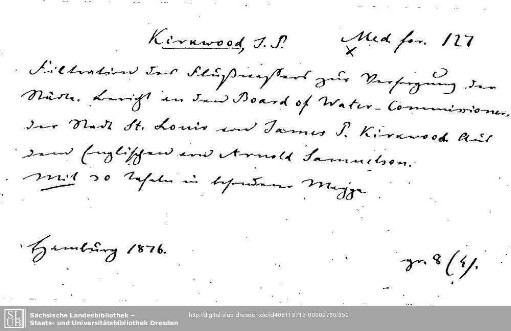 Kirkwood, J. P. Med. for. 127
x
Filtration des Flußwassers zur Versorgung der
Städte. Bericht an den Board of Water-Commissioners,
der Stadt St. Louis von James P. Kirkwood. Aus
dem Englischen von Arnold Samuelson.
Mit 30 Tafeln in besonderer Mappe
Hamburg 1876.
gr. 8 (4).
SLUB
Sächsische Landesbibliothek –
Staats- und Universitätsbibliothek Dresden